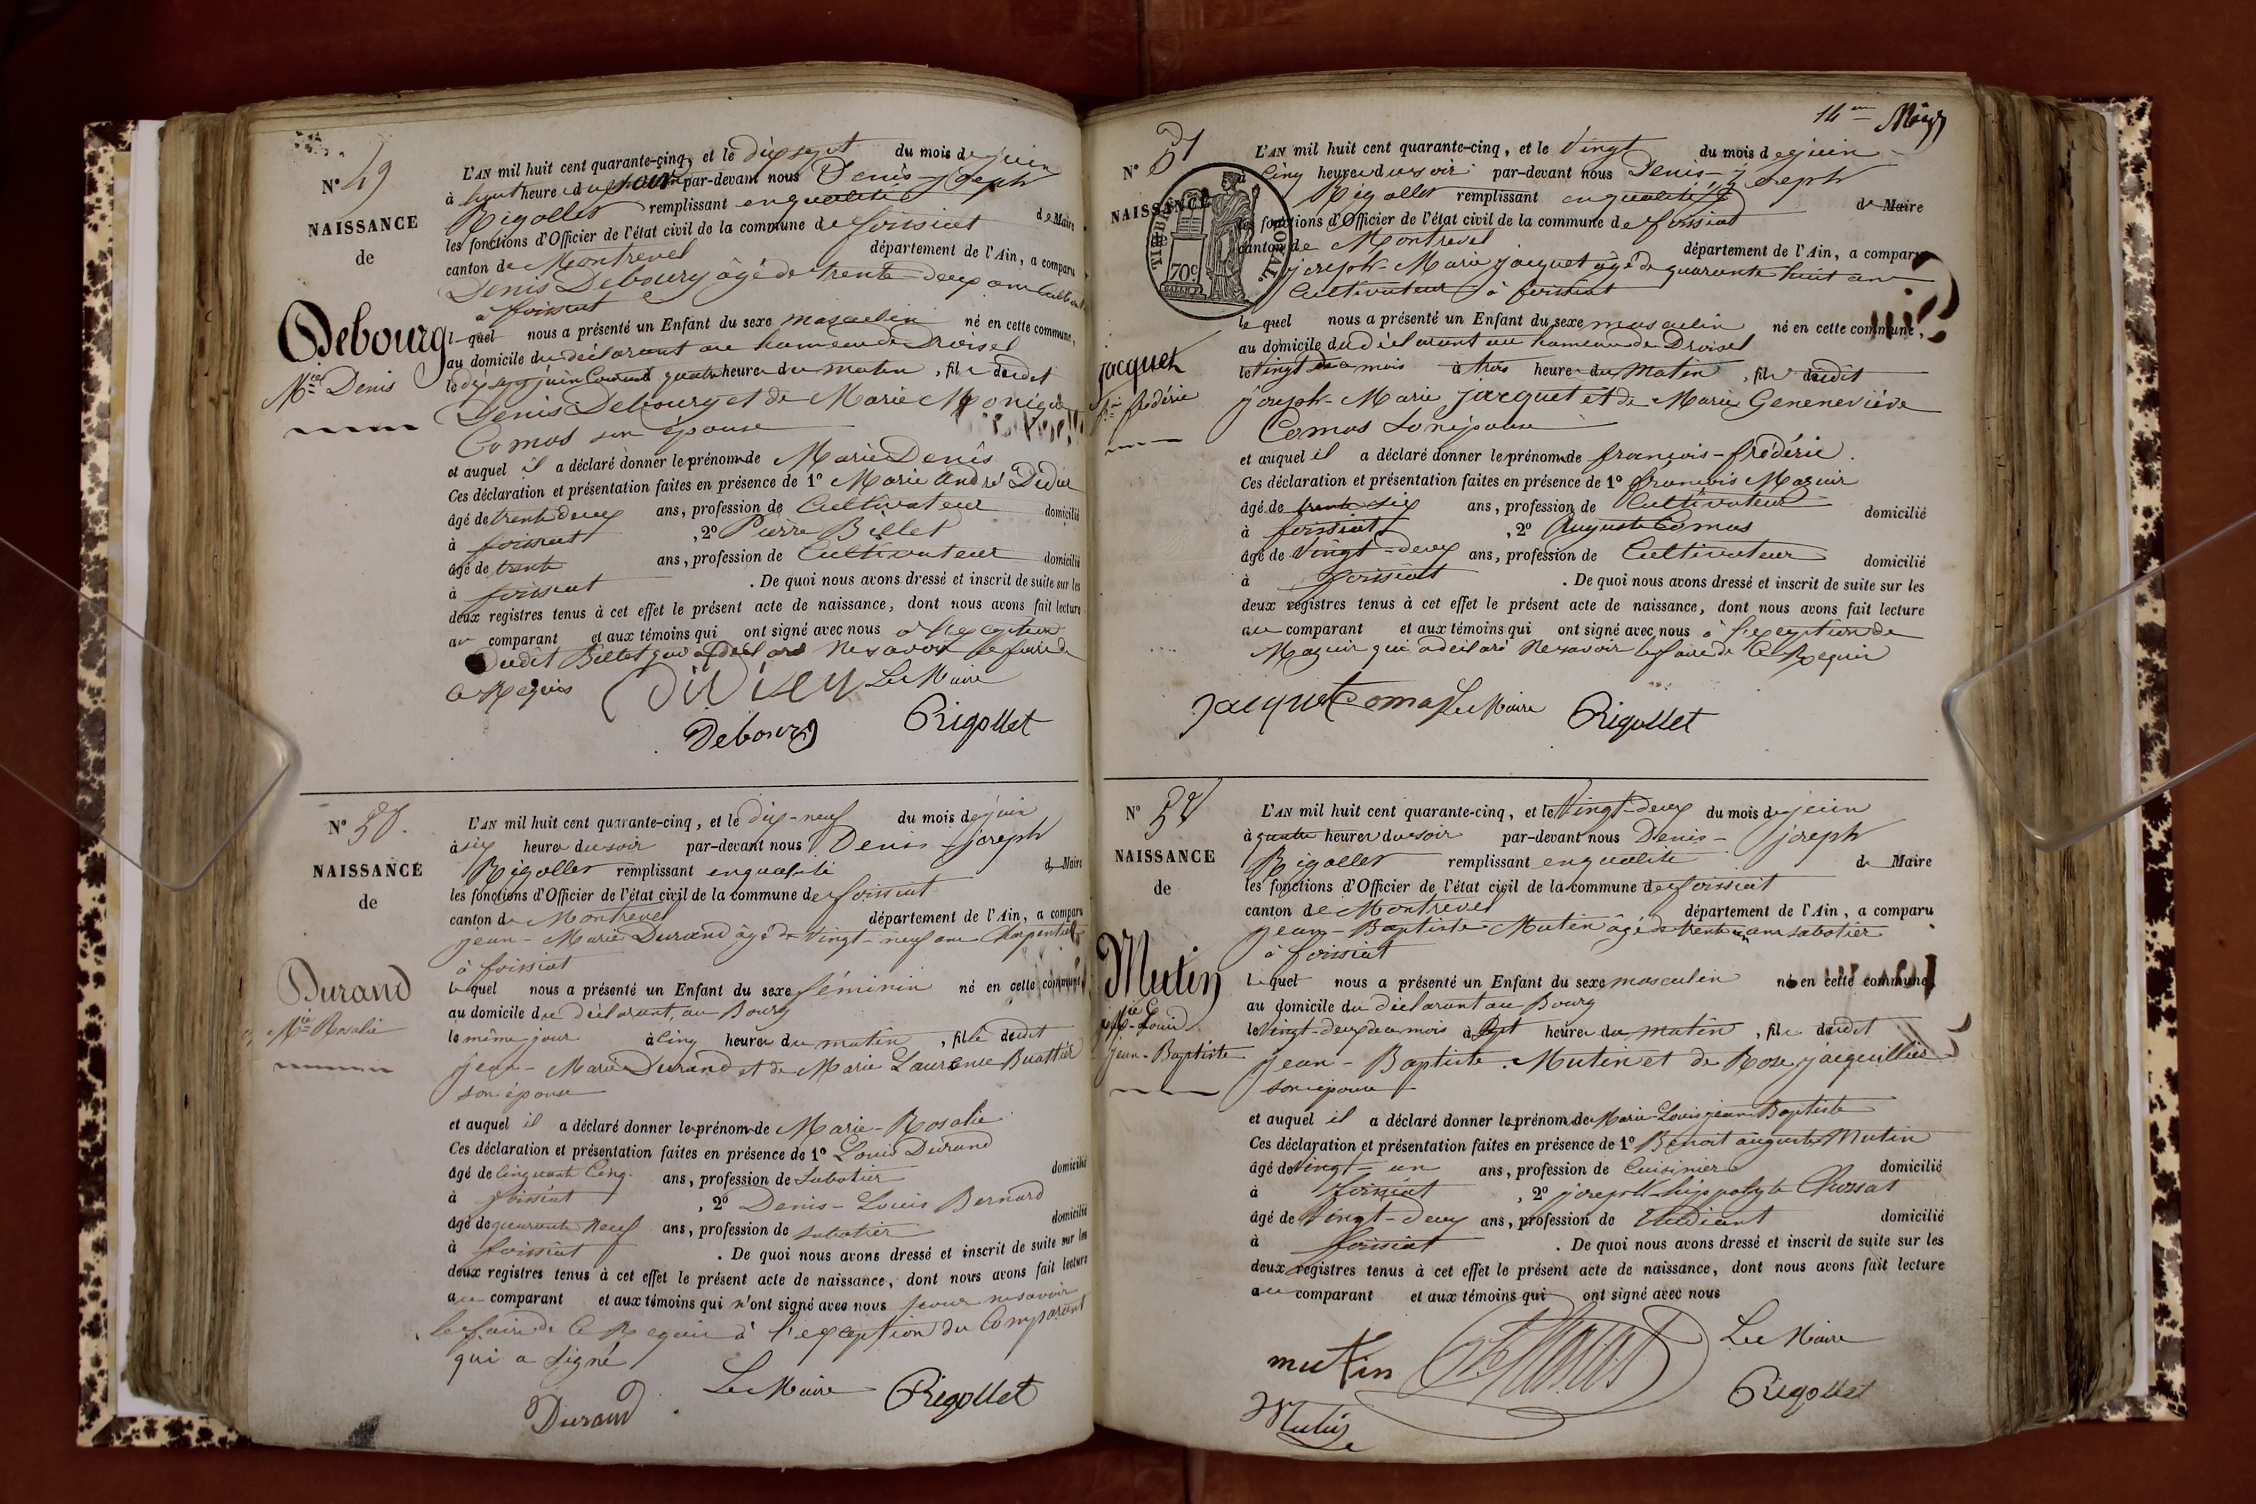 N° 49
NAISSANCE
de
Debourg
Mie Denis
L'AN mil huit cent quarante-cinq, et le dix sept du mois de juin
à huit heure du soir par-devant nous Denis-joseph
Rigollet remplissant en qualité de Maire
les fonctions d'Officier de l'état civil de la commune de foissiat
canton de Montrevel département de l'Ain, a comparu
Denis Debourg âgé de trente deux ans
à foissiat
le quel nous a présenté un Enfant du sexe masculin né en cette commune,
au domicile du déclarant au hameau de Droisel
le dix sept juin Courant quatre heure du matin, fils dudit
Denis Debourg et de Marie Monique
Comas son épouse
et auquel il a déclaré donner le prénom de Marie Denis
Ces déclaration et présentation faites en présence de 1° Marie André Didier
âgé de trente deux ans, profession de Cultivateur domicilié
à foissiat, 2° Pierre Billet
âgé de trente ans, profession de Cultivateur domicilié
à foissiat. De quoi nous avons dressé et inscrit de suite sur les
deux registres tenus à cet effet le présent acte de naissance, dont nous avons fait lecture
au comparant et aux témoins qui ont signé avec nous à l'exception
Dudit Billet qui a déclaré Ne savoir le faire de
Ce Requis Didier Le Maire
Debourg Rigollet
N° 50.
NAISSANCE
de
Durand
Mie Rosalie
L'AN mil huit cent quarante-cinq, et le dix-neuf du mois de juin
à six heure du soir par-devant nous Denis-joseph
Rigollet remplissant en qualité de Maire
les fonctions d'Officier de l'état civil de la commune de foissiat
canton de Montrevel département de l'Ain, a comparu
jean-Marie Durand âgé de Vingt-neuf ans Charpentier
à foissiat
le quel nous a présenté un Enfant du sexe féminin né en cette commune,
au domicile du déclarant, au Bourg
le même jour à cinq heure du matin, fille dudit
jean-Marie Durand et de Marie Laurence Buattier
son épouse
et auquel il a déclaré donner le prénom de Marie-Rosalie
Ces déclaration et présentation faites en présence de 1° Louis Durand
âgé de Cinquante Cinq ans, profession de Sabotier domicilié
à foissiat, 2° Denis-Louis Bernard
âgé de quarante Neuf ans, profession de sabotier domicilié
à foissiat. De quoi nous avons dressé et inscrit de suite sur les
deux registres tenus à cet effet le présent acte de naissance, dont nous avons fait lecture
au comparant et aux témoins qui n'ont signé avec nous pour ne savoir
le faire de Ce Requis à l'exception du Comparant
qui a signé
Le Maire Rigollet
Durand
14em
N° 51
NAISSANCE
TIMBRE ROYAL
70c
jacquet
frédéric
L'AN mil huit cent quarante-cinq, et le Vingt du mois de juin
Cinq heure du soir par-devant nous Denis-joseph
Rigollet remplissant en qualité de Maire
les fonctions d'Officier de l'état civil de la commune de foissiat
canton de Montrevel département de l'Ain, a comparu
joseph-Marie jacquet âgé de quarante huit ans
Cultivateur à foissiat
le quel nous a présenté un Enfant du sexe masculin né en cette commune,
au domicile du déclarant au hameau de Droisel
le Vingt du mois à trois heure du Matin, fils dudit
joseph-Marie jacquet et de Marie Geneneviève
Comas Son épouse
et auquel il a déclaré donner le prénom de françois-frédéric.
Ces déclaration et présentation faites en présence de 1° françois Mazuir
âgé de trente six ans, profession de Cultivateur domicilié
à foissiat, 2° Auguste Comas
âgé de Vingt-deux ans, profession de Cultivateur domicilié
à foissiat. De quoi nous avons dressé et inscrit de suite sur les
deux registres tenus à cet effet le présent acte de naissance, dont nous avons fait lecture
au comparant et aux témoins qui ont signé avec nous à l'exception de
Mazuir qui a déclaré Ne savoir le faire de Ce Requis
jacquet Comas Le Maire Rigollet
N° 52
NAISSANCE
de
Mutin
Mie Louis
jean-Baptiste
L'AN mil huit cent quarante-cinq, et le Vingt-deux du mois de juin
à quatre heure du soir par-devant nous Denis-joseph
Rigollet remplissant en qualité de Maire
les fonctions d'Officier de l'état civil de la commune de foissiat
canton de Montrevel département de l'Ain, a comparu
jean-Baptiste Mutin âgé de trente un ans sabotier
à foissiat
le quel nous a présenté un Enfant du sexe masculin né en cette commune,
au domicile du déclarant au Bourg
le Vingt-deux du mois à Sept heure du matin, fils dudit
jean-Baptiste Mutin et de Rose jacquillier
son épouse
et auquel il a déclaré donner le prénom de Marie-Louis jean Baptiste
Ces déclaration et présentation faites en présence de 1° Benoit auguste Mutin
âgé de Vingt-un ans, profession de Cuisinier domicilié
à foissiat, 2° joseph-hippolyte Chossat
âgé de Vingt-deux ans, profession de Etudiant domicilié
à foissiat. De quoi nous avons dressé et inscrit de suite sur les
deux registres tenus à cet effet le présent acte de naissance, dont nous avons fait lecture
au comparant et aux témoins qui ont signé avec nous
Le Maire
mutin Rigollet
Mutin